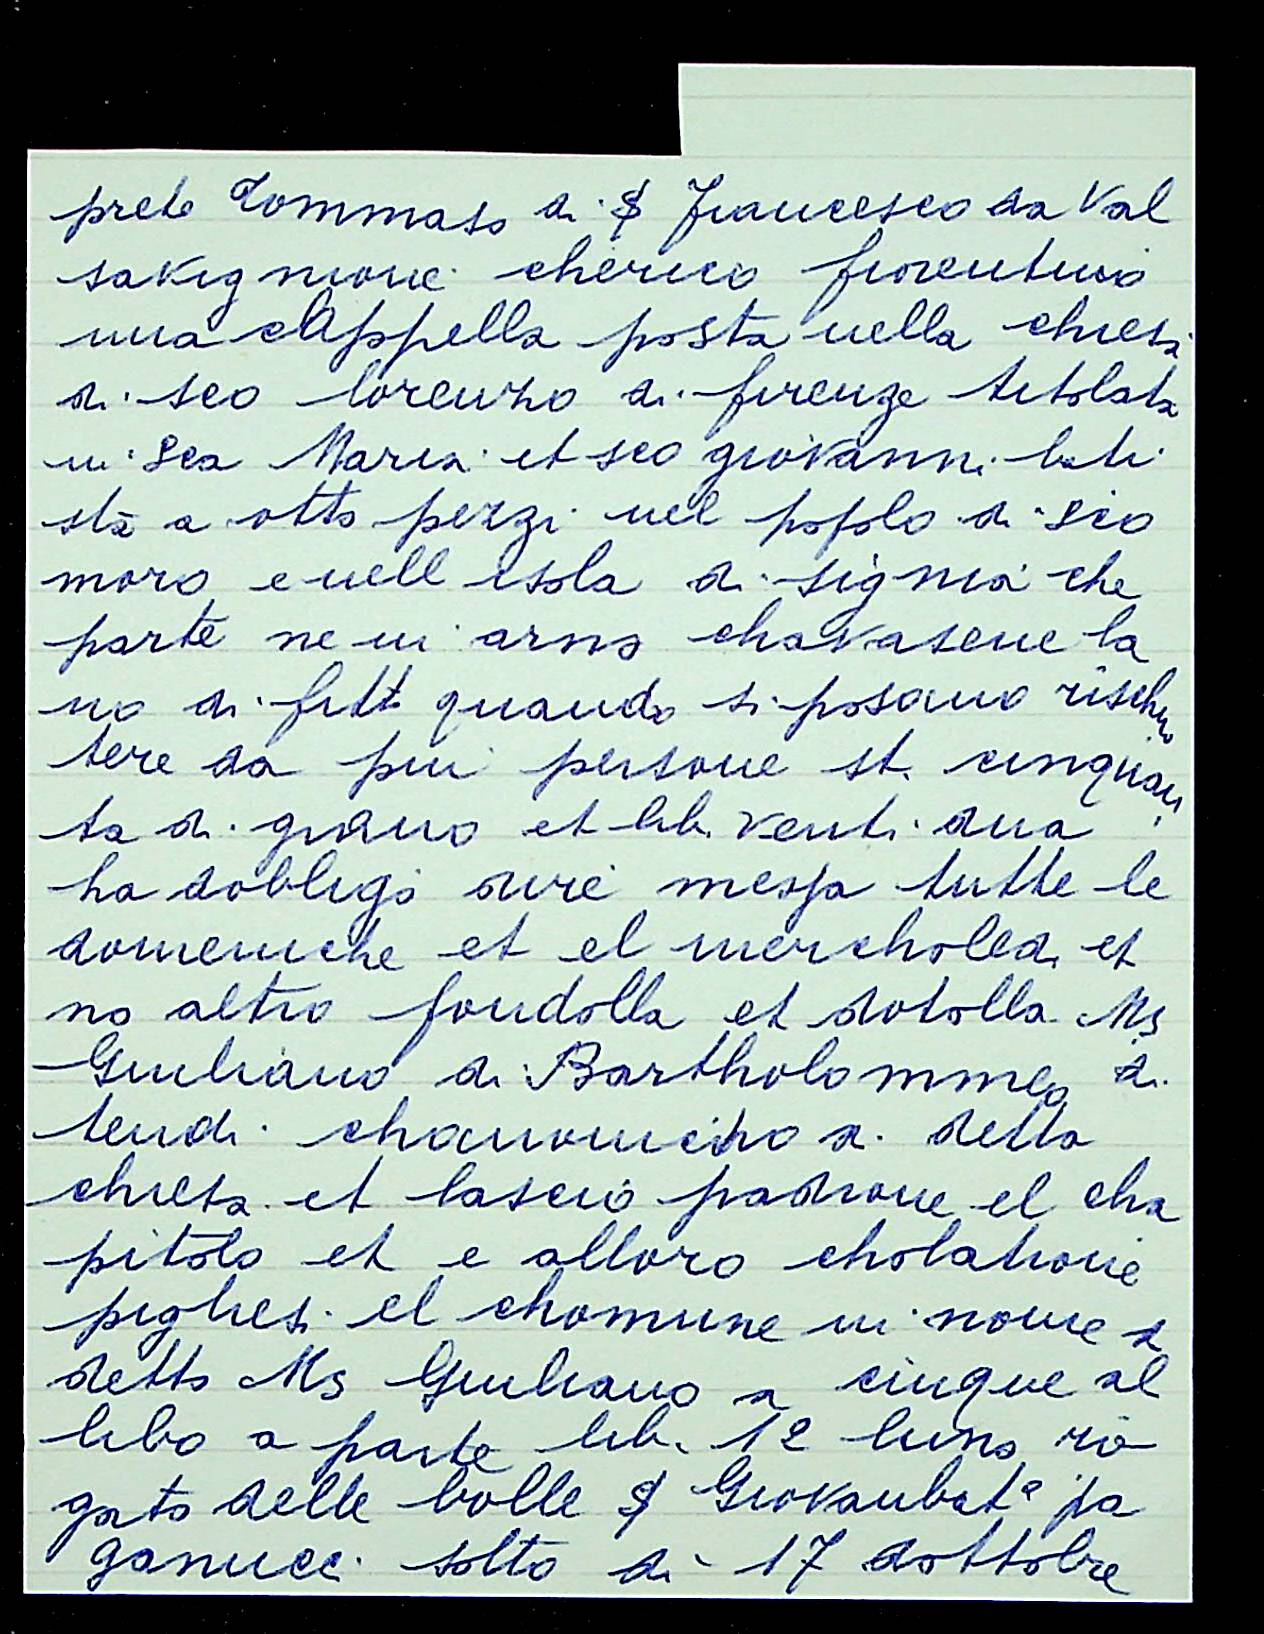 prete Tommaso di S Francesco da Val
savignione cherico fiorentino
una chappella posta nella chiesa
di sco lorenzo di firenze titolata
in Sca Maria et sco giovanni bati
sta a otto pezzi nel popolo di sco
moro e nell isola di signia che
parte ne in arno chavasene la
no di fitti quando si posano rischuo
tere da piu persone st. cinquan
ta di grano et lib. venti dua
ha dobligo dire messa tutte le
domeniche et el mercholedi et
no altro fondolla et dotolla Ms
Giuliano di Bartholommeo di
tendi chanonicho di detta
chiesa et lascio padrone el cha
pitolo et e alloro cholatione
pighesi el chomune in nome di
detto Ms Giuliano a cinque al
libo a parte lib. 12 luno ro
gato delle bolle S Giovanbat&#x1D43; pa
ganucci sotto di 17 dottobre